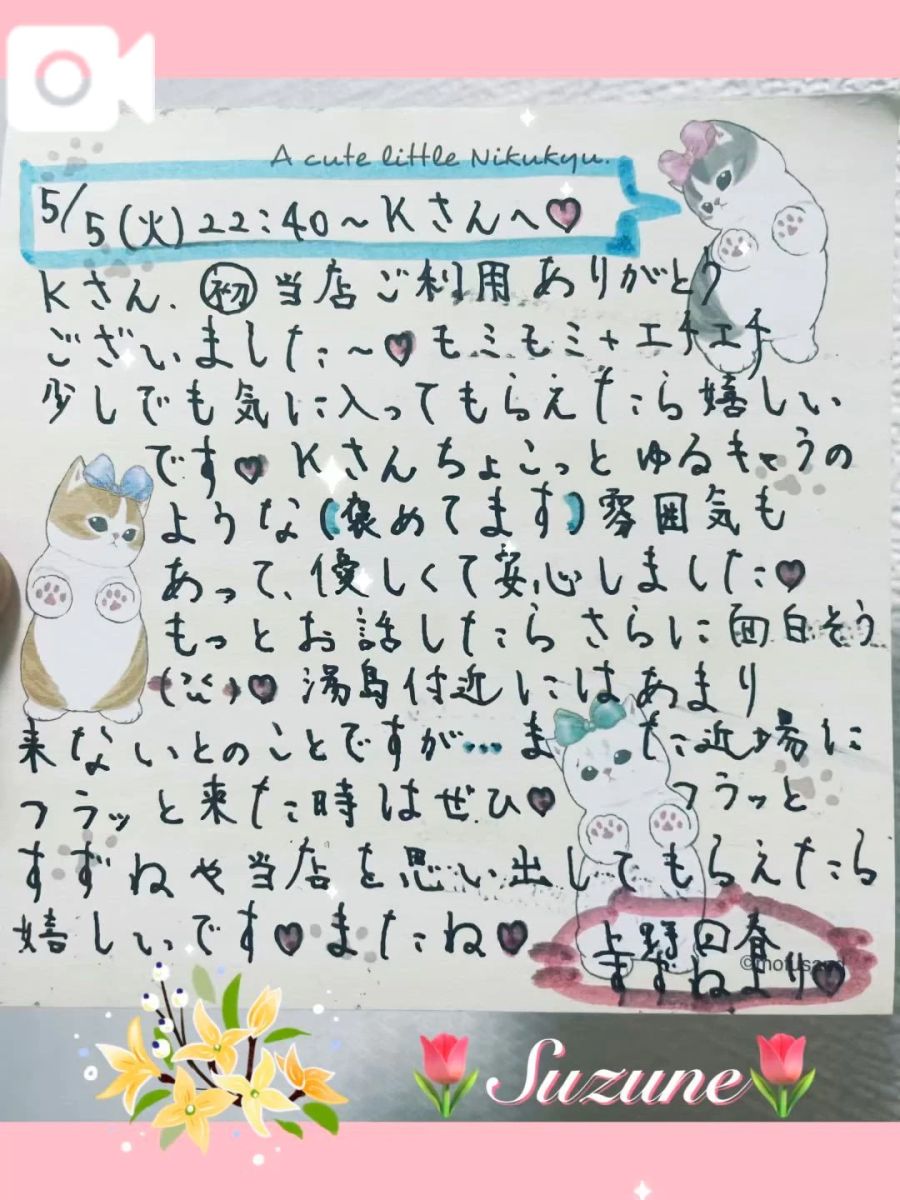 A cute little Nikukyu.
5/5(火)22:40～Kさんへ♡
Kさん、㊞当店ご利用ありがとう
ございました〜♡モミモミ+エチエチ
少しでも気に入ってもらえたら嬉しい
です♡Kさんちょこっとゆるキャラの
ような(褒めてます)雰囲気も
あって、優しくて安心しました♡
もっとお話したらさらに面白そう
♡湯島付近にはあまり
来ないとのことですが…また近場に
フラッと来た時はぜひ♡フラッと
すずねや当店を思い出してもらえたら
嬉しいです♡またね♡
上野回春
すずねより♡
©mofusand
Suzune